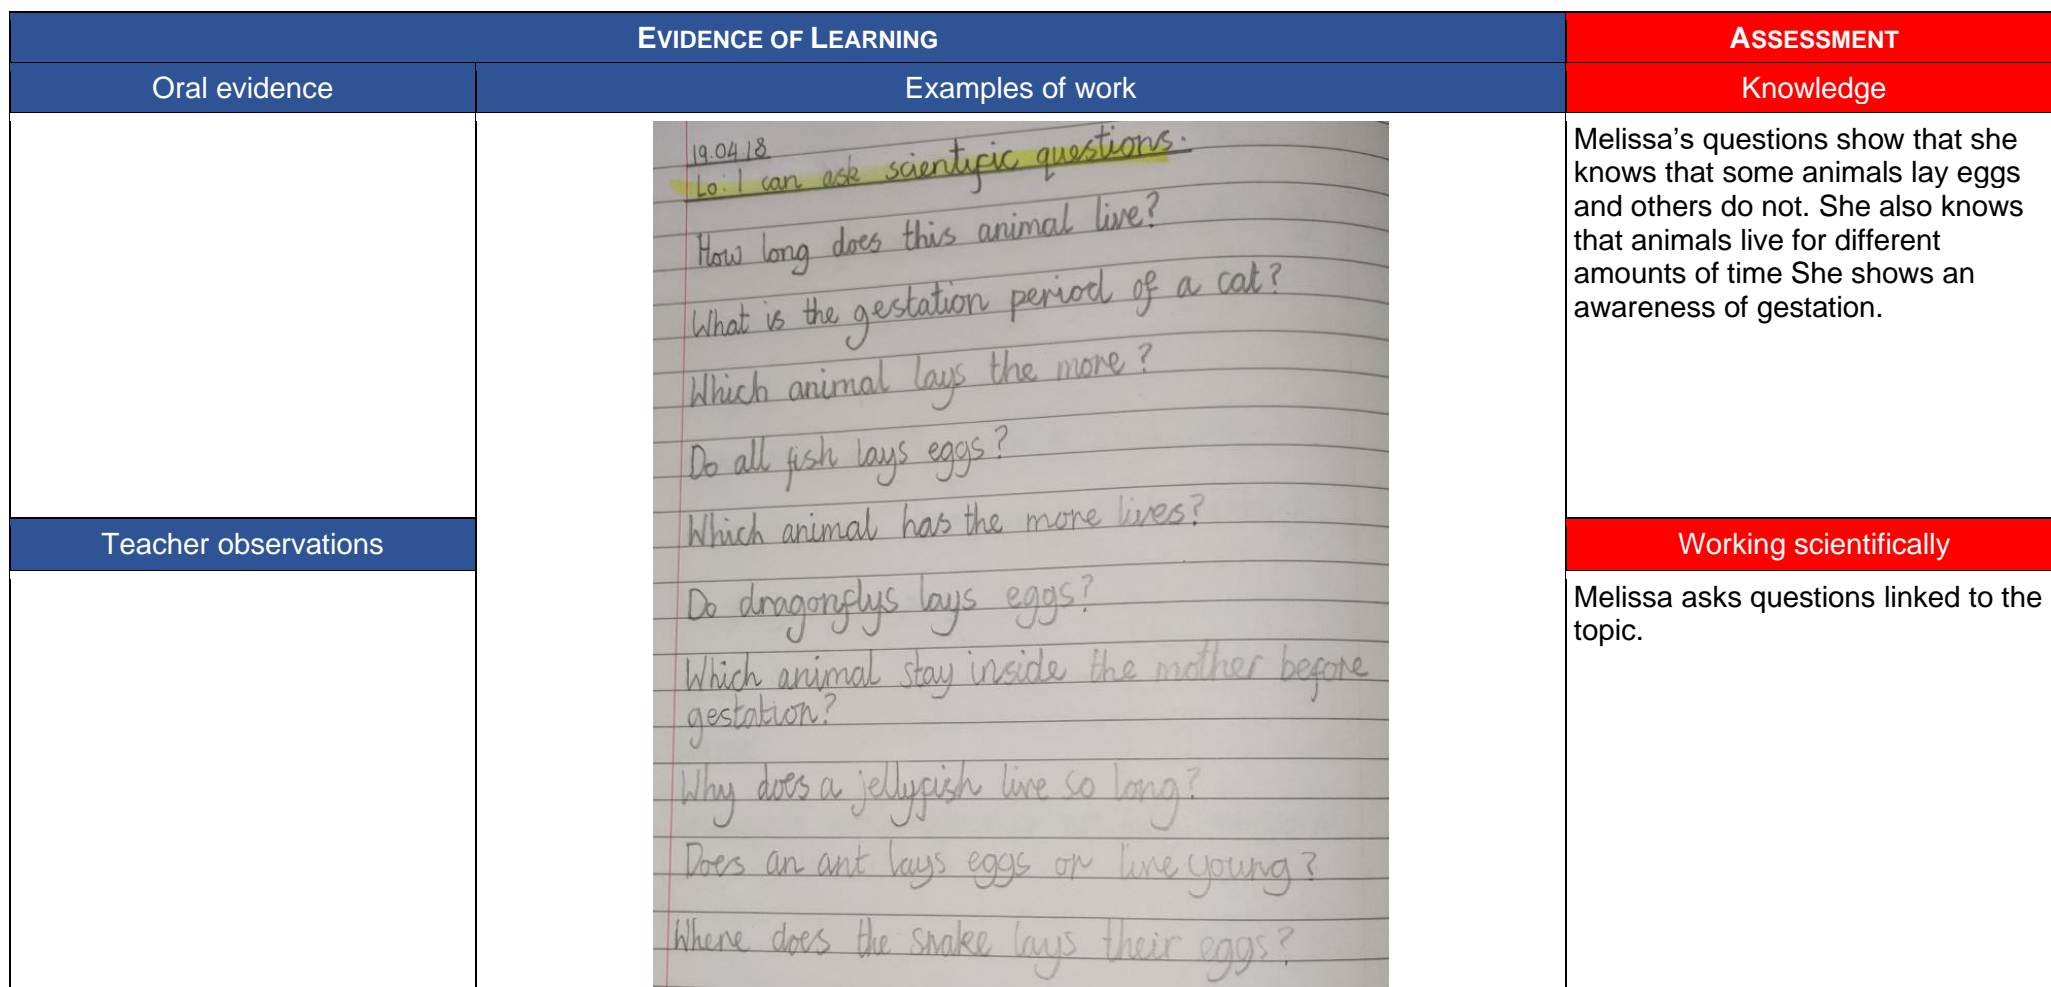 EVIDENCE OF LEARNING
ASSESSMENT
Oral evidence
Examples of work
Knowledge
19.04.18
Lo: I can ask scientific questions.
How long does this animal live?
What is the gestation period of a cat?
Which animal lays the more?
Do all fish lays eggs?
Which animal has the more lives?
Do dragonflys lays eggs?
Which animal stay inside the mother before
gestation?
Why does a jellyfish live so long?
Does an ant lays eggs or live young?
Where does the snake lays their eggs?
Melissa's questions show that she
knows that some animals lay eggs
and others do not. She also knows
that animals live for different
amounts of time She shows an
awareness of gestation.
Teacher observations
Working scientifically
Melissa asks questions linked to the
topic.